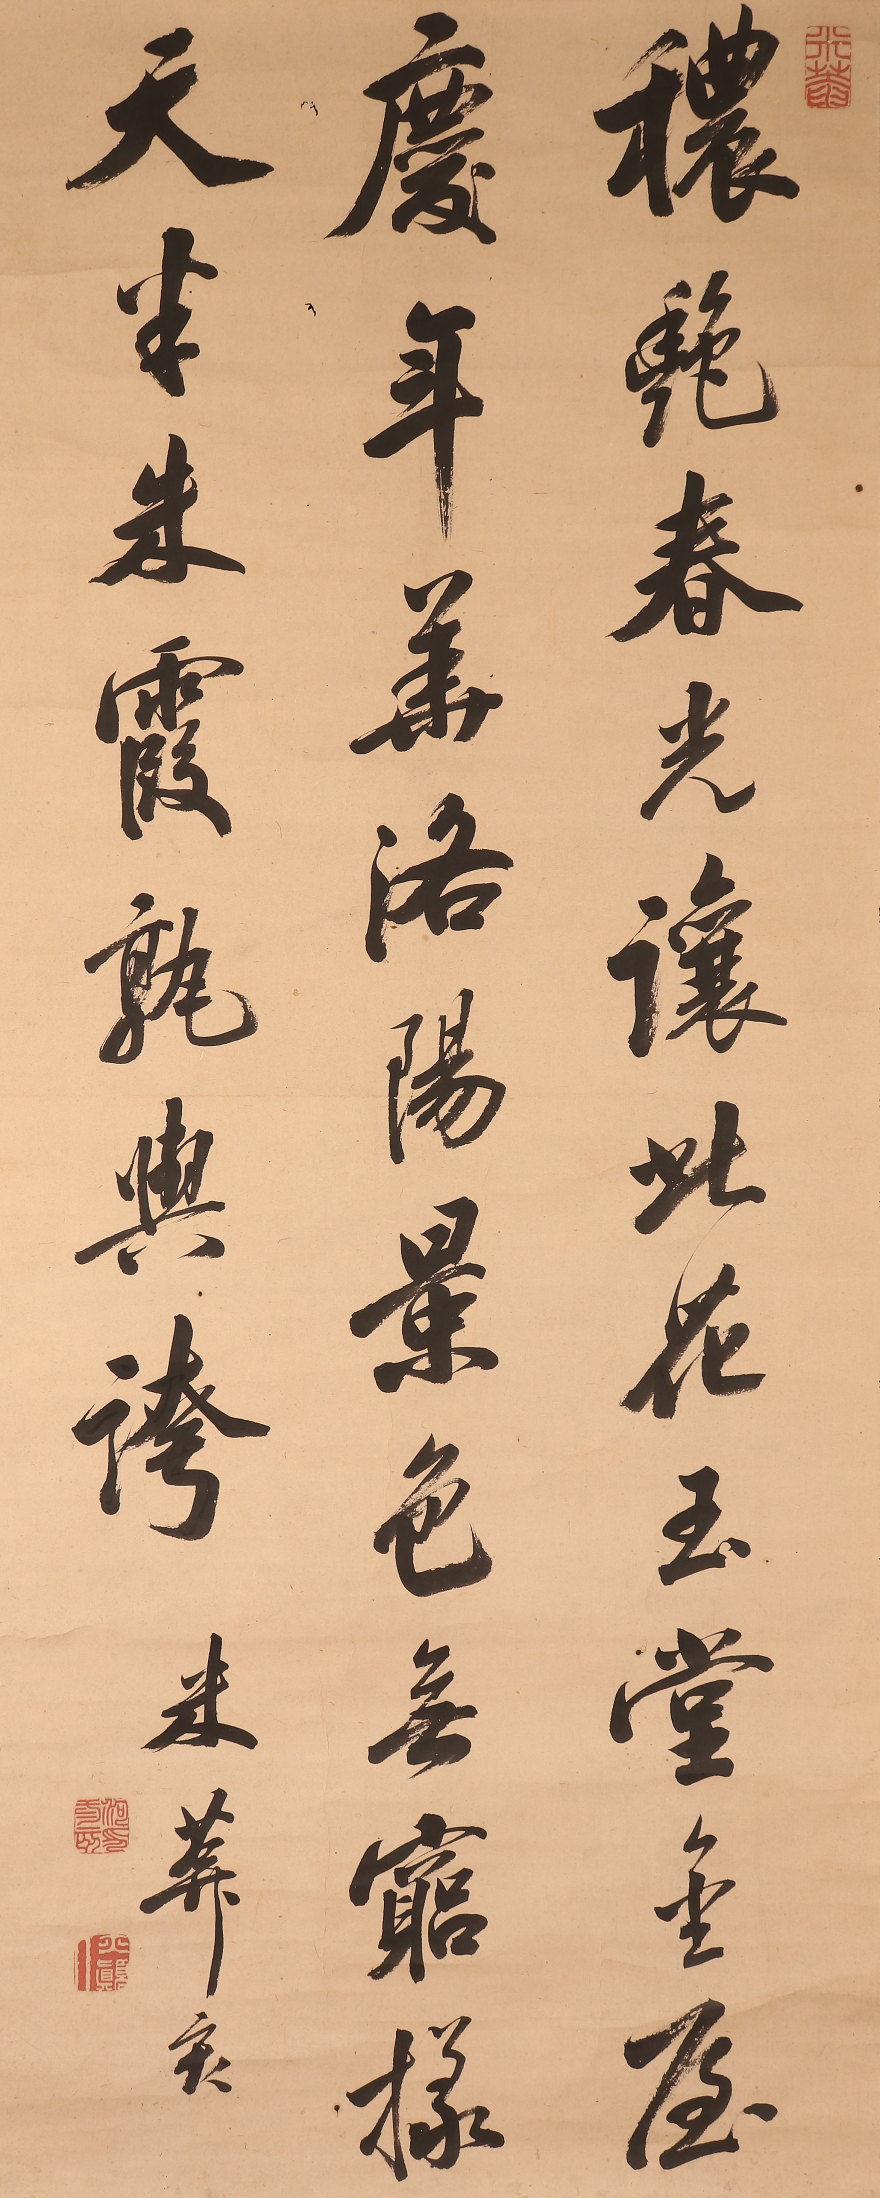 穠艶春光讓此花玉堂金屋
慶年華洛陽景色無窮樣
天半朱霞孰與誇
米葊亥